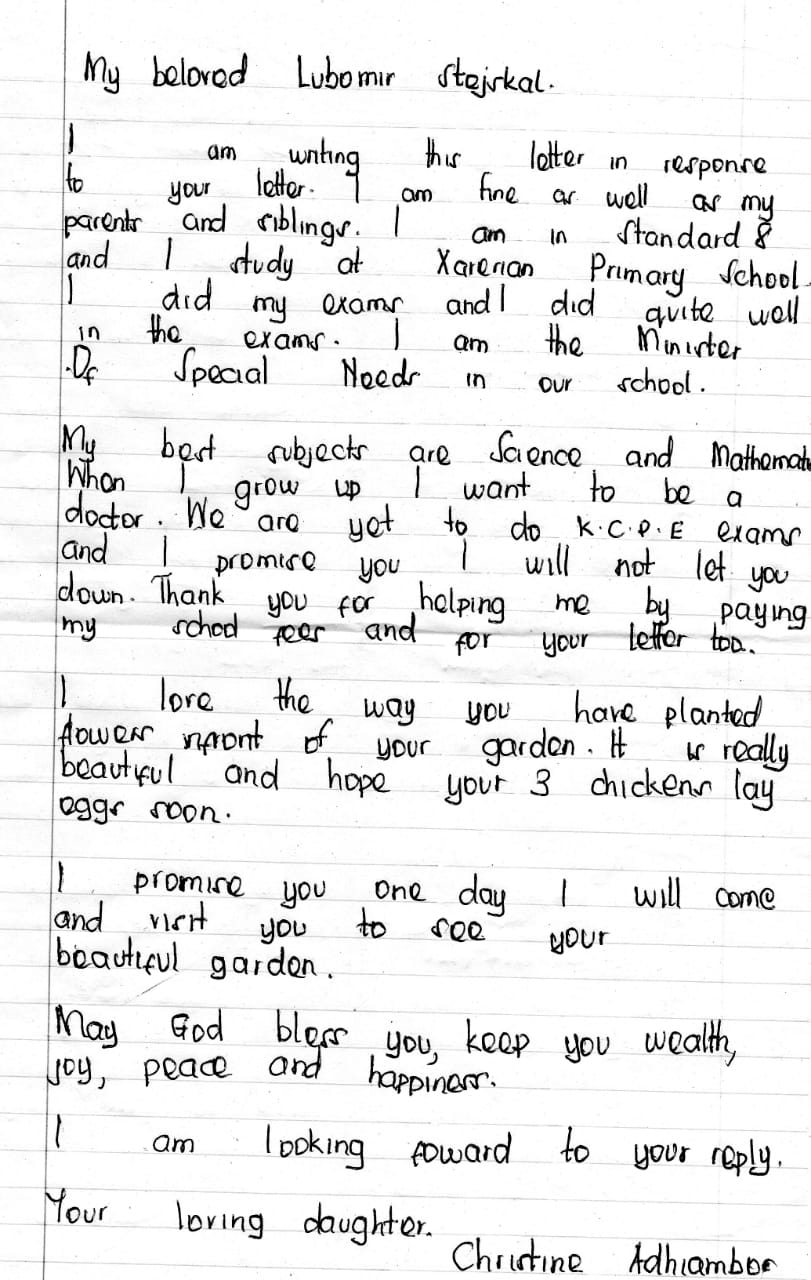 My beloved Lubomir Stejskal.
I am writing this letter in response
to your letter. I am fine as well as my
parents and siblings. I am in Standard 8
and I study at Xaverian Primary School.
I did my exams and I did quite well
in the exams. I am the Minister
Of Special Needs in our school.
My best subjects are Science and Mathemat
When I grow up I want to be a
doctor. We are yet to do K.C.P.E exams
and I promise you I will not let you
down. Thank you for helping me by paying
my school fees and for your letter too.
I love the way you have planted
flowers infront of your garden. It is really
beautiful and hope your 3 chickens lay
eggs soon.
I promise you one day I will come
and visit you to see your
beautiful garden.
May God bless you, keep you wealth,
joy, peace and happiness.
I am looking foward to your reply.
Your loving daughter.
Christine Adhiamboe